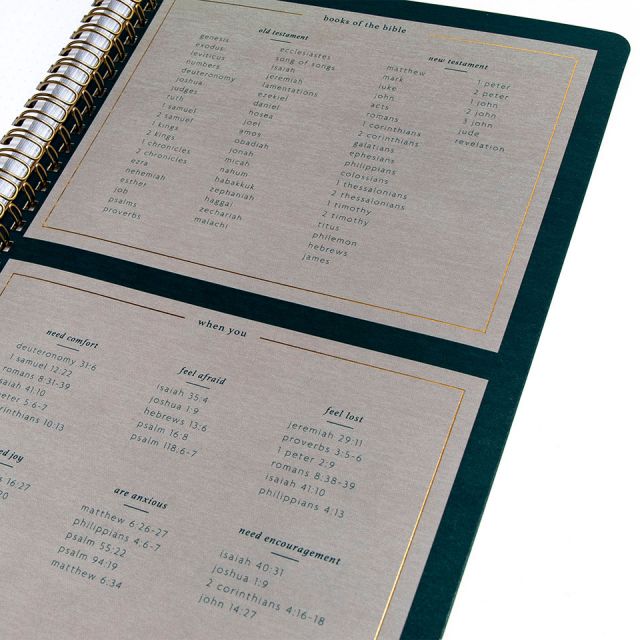 books of the bible
old testament
genesis
exodus
leviticus
numbers
deuteronomy
joshua
judges
ruth
1 samuel
2 samuel
1 kings
2 kings
1 chronicles
2 chronicles
ezra
nehemiah
esther
job
psalms
proverbs
ecclesiastes
song of songs
isaiah
jeremiah
lamentations
ezekiel
daniel
hosea
joel
amos
obadiah
jonah
micah
nahum
habakkuk
zephaniah
haggai
zechariah
malachi
new testament
matthew
mark
luke
john
acts
romans
1 corinthians
2 corinthians
galatians
ephesians
philippians
colossians
1 thessalonians
2 thessalonians
1 timothy
2 timothy
titus
philemon
hebrews
james
1 peter
2 peter
1 john
2 john
3 john
jude
revelation
when you
need comfort
deuteronomy 31:6
1 samuel 12:22
romans 8:31-39
isaiah 41:10
peter 5:6-7
corinthians 10:13
feel afraid
isaiah 35:4
joshua 1:9
hebrews 13:6
psalm 16:8
psalm 118:6-7
feel lost
jeremiah 29:11
proverbs 3:5-6
1 peter 2:9
romans 8:38-39
isaiah 41:10
philippians 4:13
joy
are anxious
matthew 6:26-27
philippians 4:6-7
psalm 55:22
psalm 94:19
matthew 6:34
need encouragement
isaiah 40:31
joshua 1:9
2 corinthians 4:16-18
john 14:27